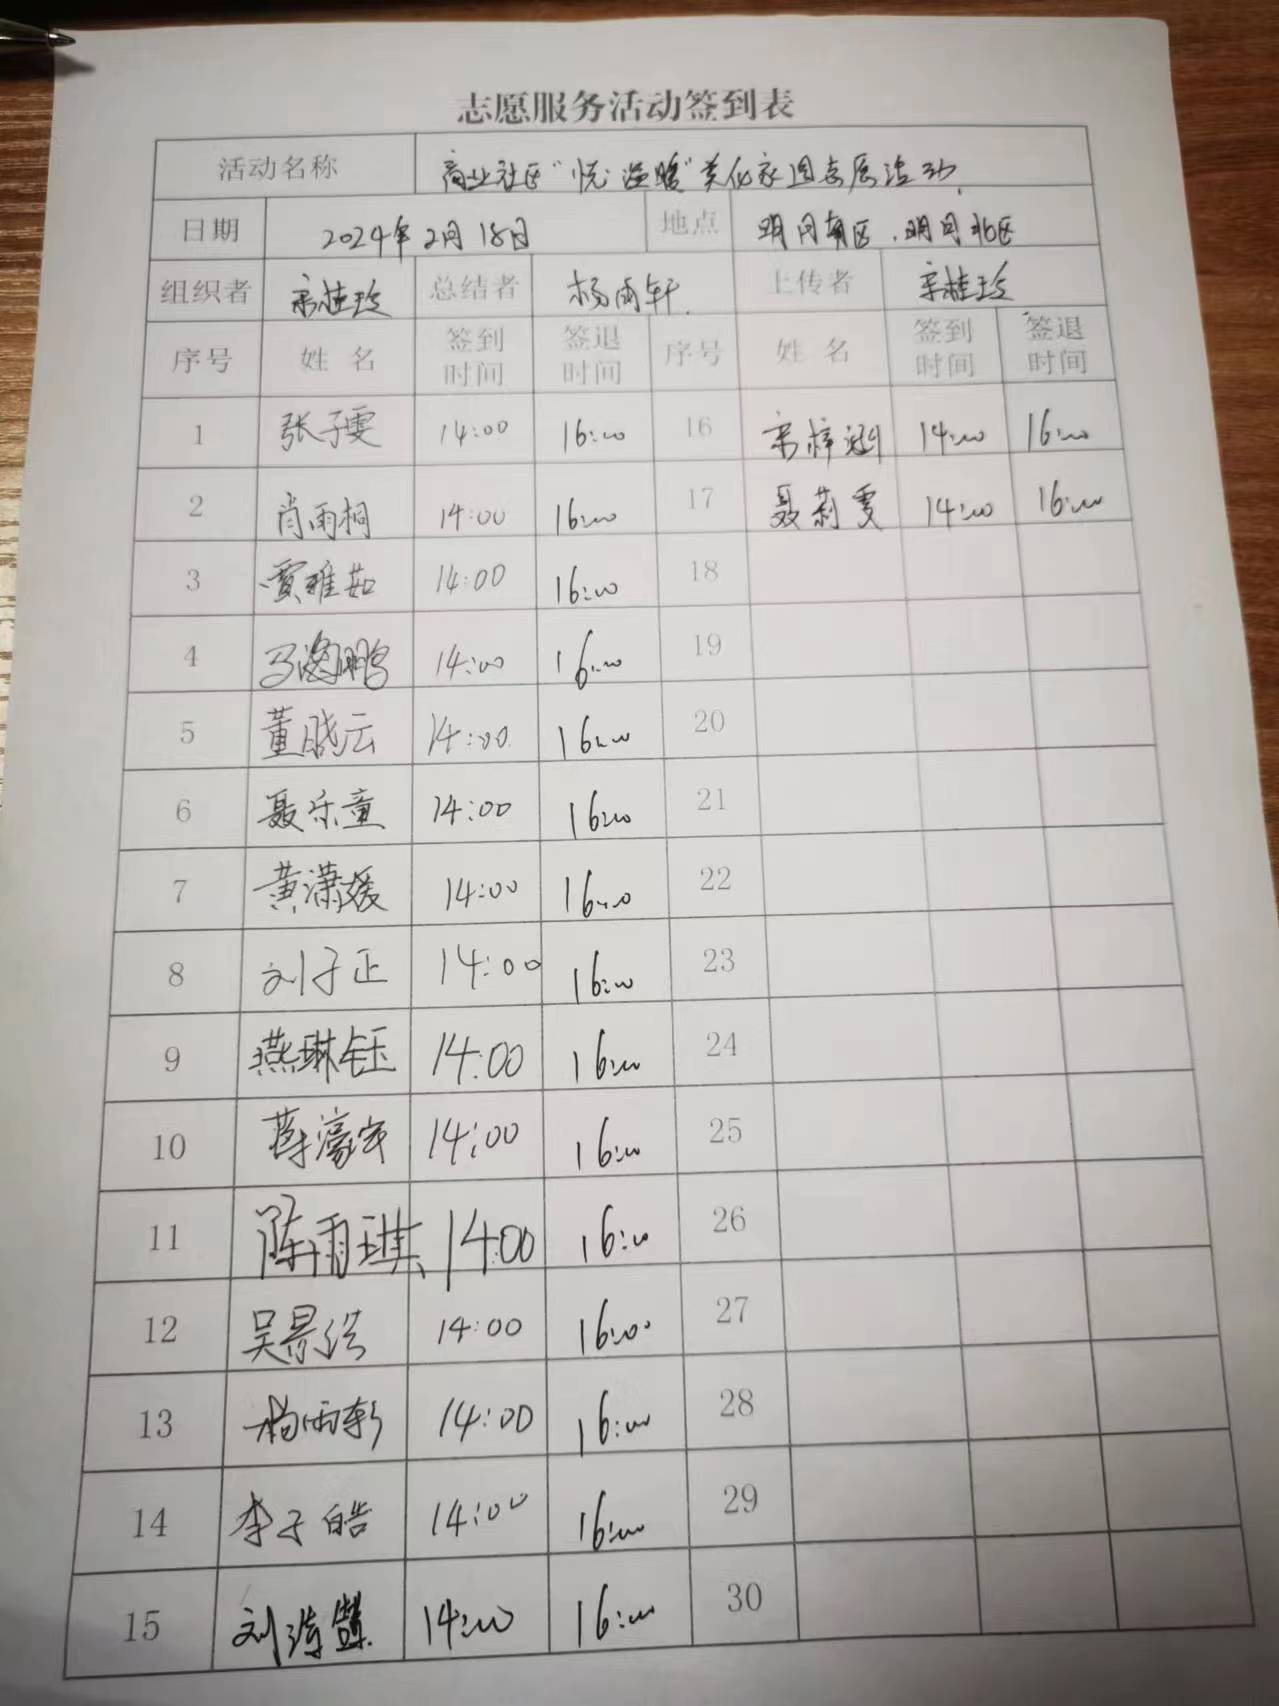 志愿服务活动签到表
活动名称 商业社区“悦·溢暖”美化家园志愿活动
日期 2024年2月18日 地点 明月南区、明月北区
组织者 宋桂玲 总结者 杨雨轩 上传者 宋桂玲
序号 姓名 签到时间 签退时间 序号 姓名 签到时间 签退时间
1 张子雯 14:00 16:00 16 宋梓涵 14:00 16:00
2 肖雨桐 14:00 16:00 17 聂莉雯 14:00 16:00
3 贾雅茹 14:00 16:00 18
4 马海鹏 14:00 16:00 19
5 董晓云 14:00 16:00 20
6 聂乐童 14:00 16:00 21
7 黄潇媛 14:00 16:00 22
8 刘子正 14:00 16:00 23
9 燕琳钰 14:00 16:00 24
10 蒋濠宇 14:00 16:00 25
11 陈雨琪 14:00 16:00 26
12 吴景浩 14:00 16:00 27
13 杨雨轩 14:00 16:00 28
14 李子皓 14:00 16:00 29
15 刘 14:00 16:00 30